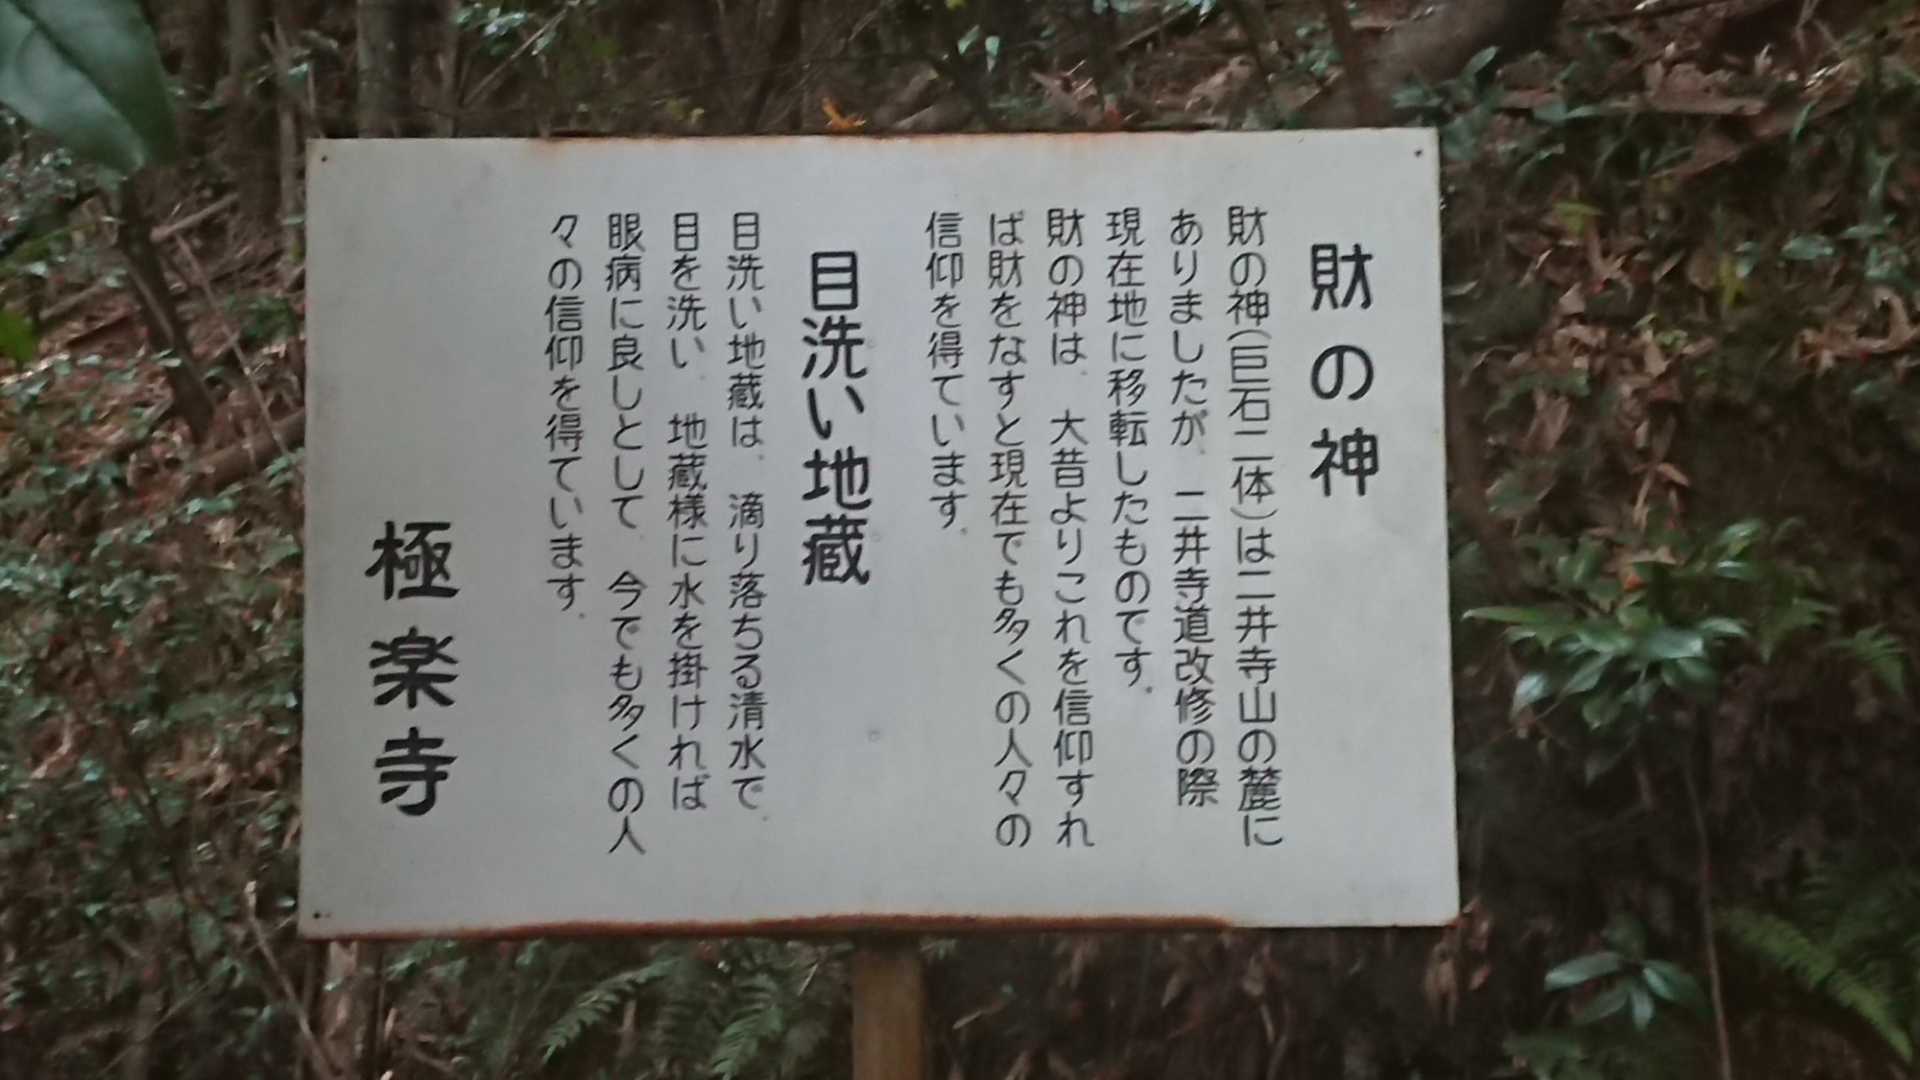 財の神
財の神(巨石二体)は二井寺山の麓に
ありましたが、二井寺道改修の際
現在地に移転したものです。
財の神は、大昔よりこれを信仰すれ
ば財をなすと現在でも多くの人々の
信仰を得ています。
目洗い地蔵
目洗い地蔵は、滴り落ちる清水で、
目を洗い、地蔵様に水を掛ければ
眼病に良しとして、今でも多くの人
々の信仰を得ています。
極楽寺